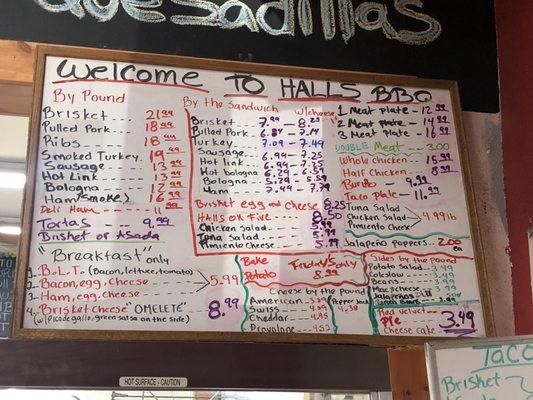 Quesadillas
Welcome To HALLS BBQ
By Pound
Brisket 21.99
Pulled Pork 18.99
Ribs 18.99
Smoked Turkey 19.99
Sausage 13.99
Hot Link 13.99
Bologna 12.99
Ham (smoked) 16.99
Deli Ham 11.99
Tortas 9.99
Brisket or Asada
By the Sandwich w/cheese
Brisket 7.99 - 8.25
Pulled Pork 6.87 - 7.14
Turkey 7.09 - 7.49
Sausage 6.94 - 7.25
Hot link 6.94 - 7.25
Hot bologna
Bologna
Ham 7.49 - 7.79
Brisket egg and cheese 8.25
Halls on Five 8.50
Chicken Salad 5.99
Tuna Salad 5.99
Pimiento cheese 5.99
1 Meat plate 12.99
2 Meat plate 14.99
3 Meat Plate 16.99
Double Meat 3.00
Whole chicken 15.99
Half Chicken 8.99
Burrito 9.99
Taco Plate 11.99
Tuna Salad
Chicken Salad 4.99 lb
Pimiento Cheese
Jalapeño Poppers 2.00 ea
"Breakfast" only
1. B.L.T. (Bacon, lettuce, tomato)
2. Bacon, egg, cheese 5.99
3. Ham, egg, cheese
4. "Brisket cheese" OMELETE" 8.99
(w/pico de gallo, green salsa on the side)
Bake Potato
Friday's only
8.99
Cheese by the pound
American
Swiss 4.95
Cheddar 4.95
Provalone 4.53
Pepper Jack
4.38
Sides by the Pound
Potato Salad 3.49
Coleslaw 3.49
Beans 3.49
Mac & cheese 3.49
Jalapeños
Red velvet
Pie 3.49
Cheese cake
HOT SURFACE - CAUTION
TACO
Brisket